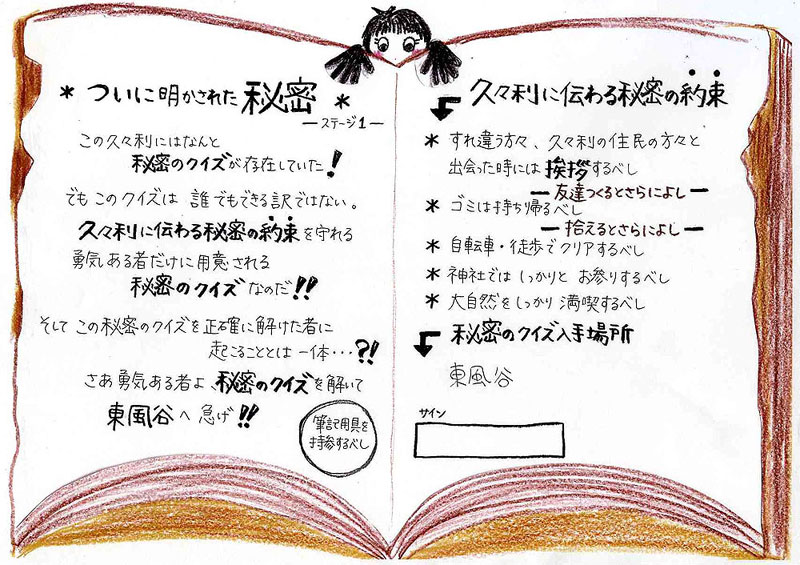 * ついに明かされた秘密 *
ーステージ1ー
この久々利にはなんと
秘密のクイズが存在していた!
でもこのクイズは 誰でもできる訳ではない。
久々利に伝わる秘密の約束を守れる
勇気ある者だけに用意される
秘密のクイズなのだ!!
そしてこの秘密のクイズを正確に解けた者に
起こることとは一体・・・?!
さあ勇気ある者よ、秘密のクイズを解いて
東風谷へ急げ!!
筆記用具を
持参するべし
久々利に伝わる秘密の約束
* すれ違う方々、久々利の住民の方々と
出会った時には挨拶するべし
ー友達つくるとさらによしー
* ゴミは持ち帰るべし
ー拾えるとさらによしー
* 自転車・徒歩でクリアするべし
* 神社ではしっかりとお参りするべし
* 大自然をしっかり満喫するべし
秘密のクイズ入手場所
東風谷
サイン